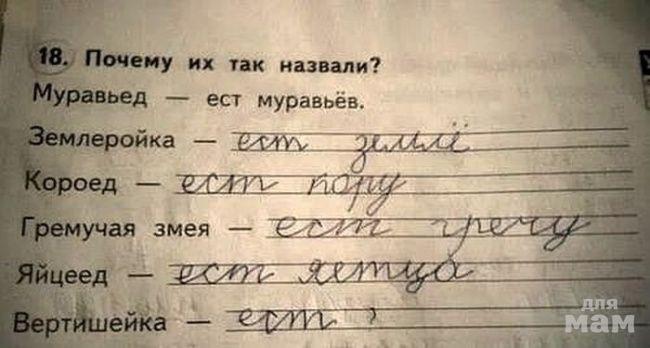 18. Почему их так назвали?
Муравьед — ест муравьёв.
Землеройка — ест землё
Короед — ест кору
Гремучая змея — ест гречу
Яйцеед — ест яетца
Вертишейка — ест ?
для
мам